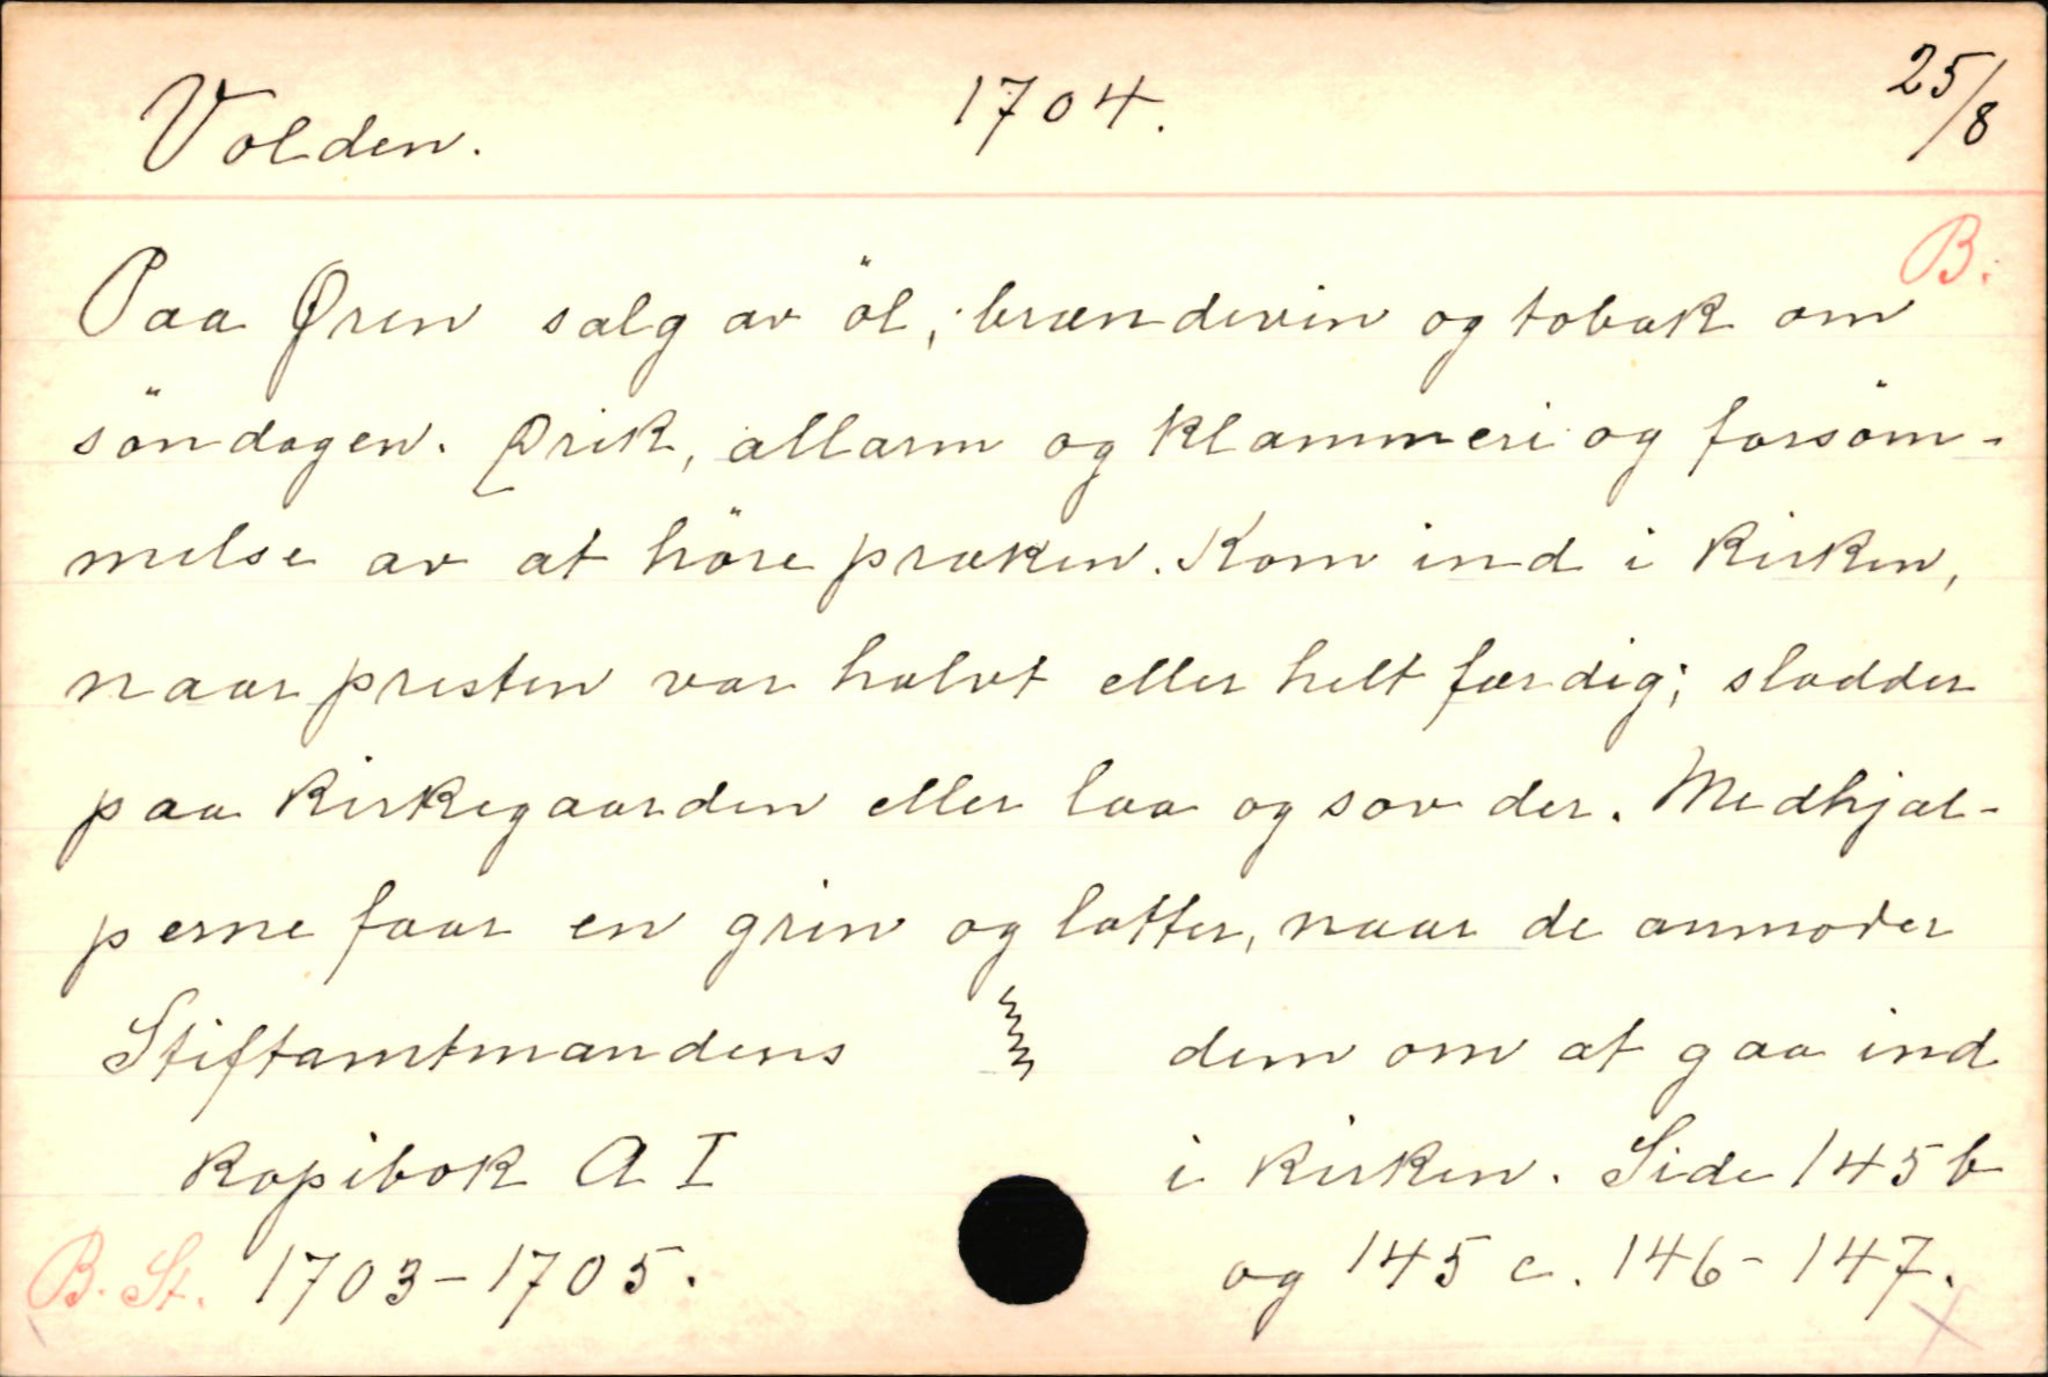 Volden. 1704. 25/8
B.
Paa Øren salg av öl, brændevin og tobak om
söndagen. Drik, allarm og klammeri og forsöm-
melse av at höre præken. Kom ind i kirken,
naar presten var halvt eller helt færdig; sladder
paa kirkegaarden eller laa og sov der. Medhjæl-
perne faar en grin og latter, naar de anmoder
dem om at gaa ind
i kirken. Side 145 b
og 145 c. 146-147.
Stiftamtmandens
kopibok A I
B. St. 1703-1705.